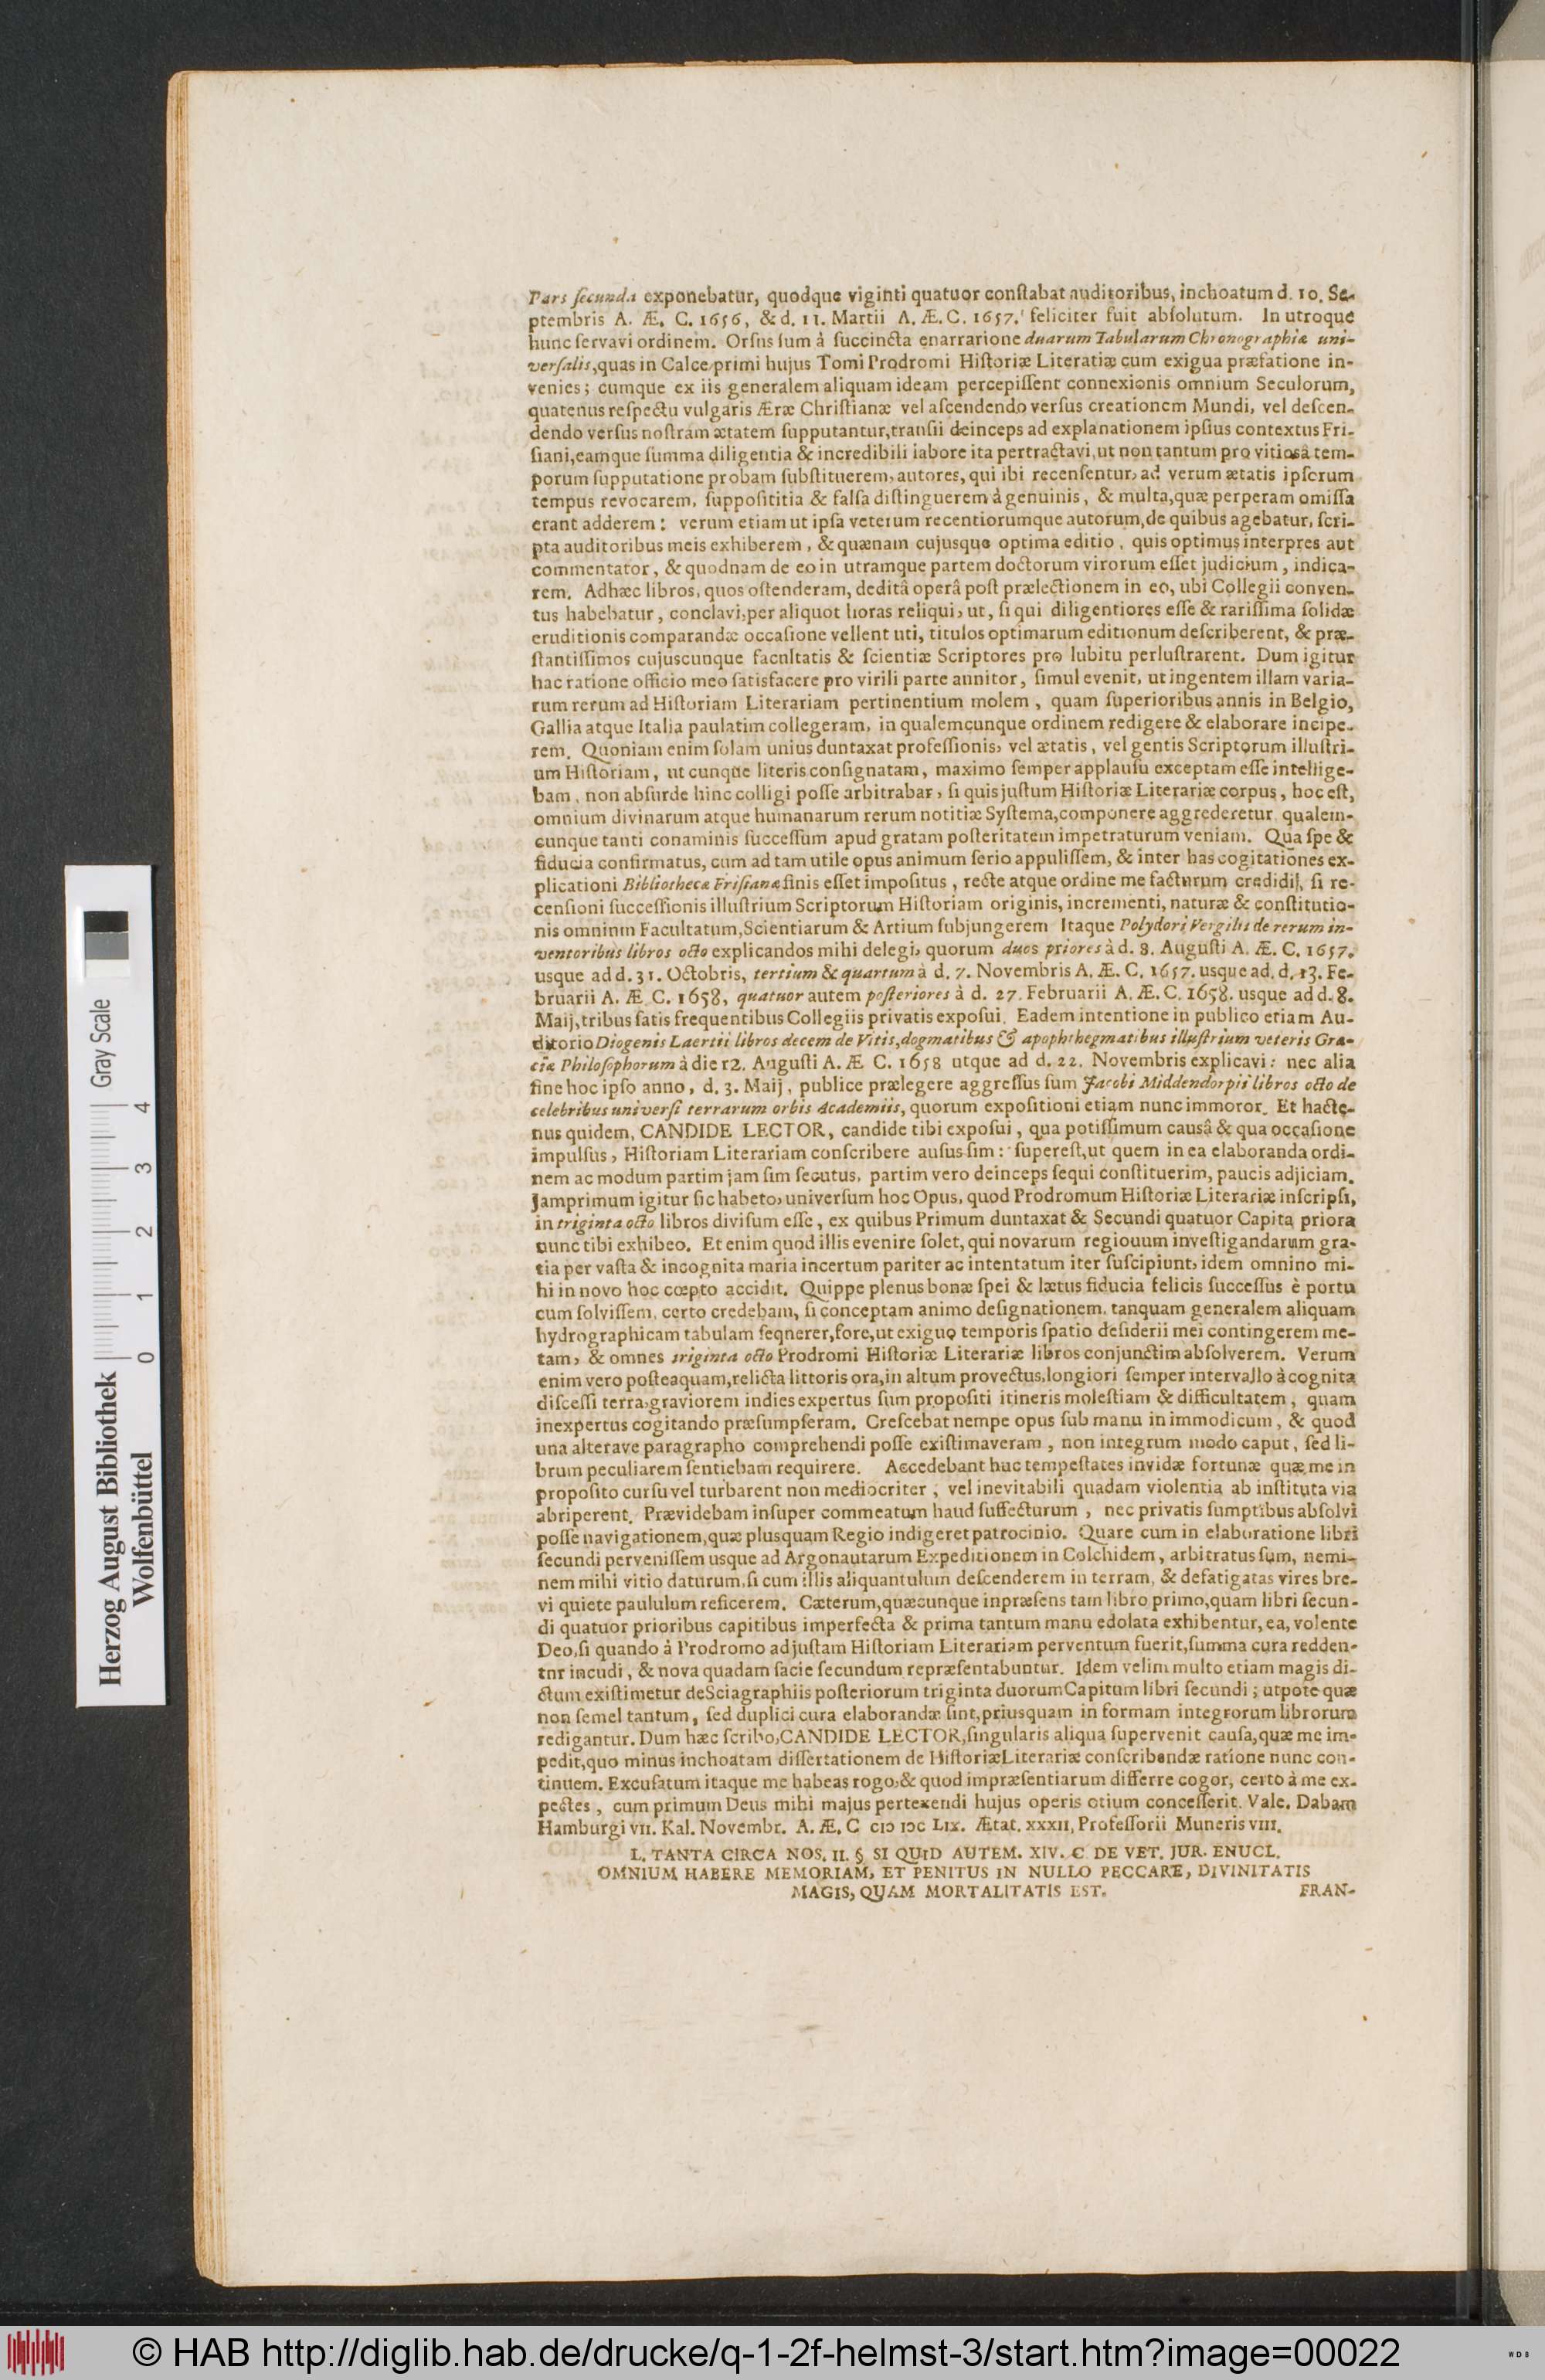 Pars ſecunda exponebatur, quodque viginti quatuor conſtabat auditoribus, inchoatum d. 10. Se-
ptembris A. Æ. C. 1656, & d. 11. Martii A. Æ. C. 1657. feliciter fuit abſolutum. In utroque
hunc ſervavi ordinem. Orſus ſum à ſuccincta enarratione duarum Tabularum Chronographiæ uni-
verſalis, quas in Calce primi hujus Tomi Prodromi Hiſtoriæ Literatiæ cum exigua præfatione in-
venies; cumque ex iis generalem aliquam ideam percepiſſent connexionis omnium Seculorum,
quatenus reſpectu vulgaris Æræ Chriſtianæ vel aſcendendo verſus creationem Mundi, vel deſcen-
dendo verſus noſtram ætatem ſupputantur, tranſii deinceps ad explanationem ipſius contextus Fri-
ſiani, eamque ſumma diligentia & incredibili labore ita pertractavi, ut non tantum pro vitiosâ tem-
porum ſupputatione probam ſubſtituerem, autores, qui ibi recenſentur, ad verum ætatis ipſorum
tempus revocarem, ſuppoſititia & falſa diſtinguerem à genuinis, & multa, quæ perperam omiſſa
erant adderem: verum etiam ut ipſa veterum recentiorumque autorum, de quibus agebatur, ſcri-
pta auditoribus meis exhiberem, & quænam cujusque optima editio, quis optimus interpres aut
commentator, & quodnam de eo in utramque partem doctorum virorum eſſet judicium, indica-
rem. Adhæc libros, quos oſtenderam, deditâ operâ poſt prælectionem in eo, ubi Collegii conven-
tus habebatur, conclavi, per aliquot horas reliqui, ut, ſi qui diligentiores eſſe & rariſſima ſolidæ
eruditionis comparandæ occaſione vellent uti, titulos optimarum editionum deſcriberent, & præ-
ſtantiſſimos cujuscunque facultatis & ſcientiæ Scriptores pro lubitu perluſtrarent. Dum igitur
hac ratione officio meo ſatisfacere pro virili parte annitor, ſimul evenit, ut ingentem illam varia-
rum rerum ad Hiſtoriam Literariam pertinentium molem, quam ſuperioribus annis in Belgio,
Gallia atque Italia paulatim collegeram, in qualemcunque ordinem redigere & elaborare incipe-
rem. Quoniam enim ſolam unius duntaxat profeſſionis, vel ætatis, vel gentis Scriptorum illuſtri-
um Hiſtoriam, ut cunque literis conſignatam, maximo ſemper applauſu exceptam eſſe intellige-
bam, non abſurde hinc colligi poſſe arbitrabar, ſi quis juſtum Hiſtoriæ Literariæ corpus, hoc eſt,
omnium divinarum atque humanarum rerum notitiæ Syſtema, componere aggrederetur, qualem-
cunque tanti conaminis ſucceſſum apud gratam poſteritatem impetraturum veniam. Qua ſpe &
fiducia confirmatus, cum ad tam utile opus animum ſerio appuliſſem, & inter has cogitationes ex-
plicationi Bibliothecæ Friſianæ finis eſſet impoſitus, recte atque ordine me facturum credidi, ſi re-
cenſioni ſucceſſionis illuſtrium Scriptorum Hiſtoriam originis, incrementi, naturæ & conſtitutio-
nis omnium Facultatum, Scientiarum & Artium ſubjungerem Itaque Polydori Vergilii de rerum in-
ventoribus libros octo explicandos mihi delegi, quorum duos priores à d. 8. Auguſti A. Æ. C. 1657.
usque ad d. 31. Octobris, tertium & quartum à d. 7. Novembris A. Æ. C. 1657. usque ad. d. 13. Fe-
bruarii A. Æ C. 1658, quatuor autem poſteriores à d. 27. Februarii A. Æ. C. 1658. usque ad d. 8.
Maij, tribus ſatis frequentibus Collegiis privatis expoſui. Eadem intentione in publico etiam Au-
ditorio Diogenis Laertii libros decem de Vitis, dogmatibus & apophthegmatibus illuſtrium veteris Græ-
ciæ Philoſophorum à die 12. Auguſti A. Æ C. 1658 utque ad d. 22. Novembris explicavi: nec alia
fine hoc ipſo anno, d. 3. Maij, publice prælegere aggreſſus ſum Jacobi Middendorpii libros octo de
celebribus univerſi terrarum orbis Academiis, quorum expoſitioni etiam nunc immoror. Et hacte-
nus quidem, CANDIDE LECTOR, candide tibi expoſui, qua potiſſimum causâ & qua occaſione
impulſus, Hiſtoriam Literariam conſcribere auſus ſim: ſupereſt, ut quem in ea elaboranda ordi-
nem ac modum partim jam ſim ſecutus, partim vero deinceps ſequi conſtituerim, paucis adjiciam.
Jamprimum igitur ſic habeto, univerſum hoc Opus, quod Prodromum Hiſtoriæ Literariæ inſcripſi,
in triginta octo libros diviſum eſſe, ex quibus Primum duntaxat & Secundi quatuor Capita priora
nunc tibi exhibeo. Et enim quod illis evenire ſolet, qui novarum regiouum inveſtigandarum gra-
tia per vaſta & incognita maria incertum pariter ac intentatum iter ſuſcipiunt, idem omnino mi-
hi in novo hoc cœpto accidit. Quippe plenus bonæ ſpei & lætus fiducia felicis ſucceſſus è portu
cum ſolviſſem, certo credebam, ſi conceptam animo deſignationem, tanquam generalem aliquam
hydrographicam tabulam ſeqnerer, fore, ut exiguo temporis ſpatio deſiderii mei contingerem me-
tam, & omnes triginta octo Prodromi Hiſtoriæ Literariæ libros conjunctim abſolverem. Verum
enim vero poſteaquam, relicta littoris ora, in altum provectus, longiori ſemper intervallo à cognita
diſceſſi terra, graviorem indies expertus ſum propoſiti itineris moleſtiam & difficultatem, quam
inexpertus cogitando præſumpſeram. Creſcebat nempe opus ſub manu in immodicum, & quod
una alterave paragrapho comprehendi poſſe exiſtimaveram, non integrum modo caput, ſed li-
brum peculiarem ſentiebam requirere. Accedebant huc tempeſtates invidæ fortunæ quæ me in
propoſito curſu vel turbarent non mediocriter, vel inevitabili quadam violentia ab inſtituta via
abriperent. Prævidebam inſuper commeatum haud ſuffecturum, nec privatis ſumptibus abſolvi
poſſe navigationem, quæ plusquam Regio indigeret patrocinio. Quare cum in elaboratione libri
ſecundi perveniſſem usque ad Argonautarum Expeditionem in Colchidem, arbitratus ſum, nemi-
nem mihi vitio daturum, ſi cum illis aliquantulum deſcenderem in terram, & defatigatas vires bre-
vi quiete paululum reficerem. Cæterum, quæcunque inpræſens tam libro primo, quam libri ſecun-
di quatuor prioribus capitibus imperfecta & prima tantum manu edolata exhibentur, ea, volente
Deo, ſi quando à Prodromo ad juſtam Hiſtoriam Literariam perventum fuerit, ſumma cura redden-
tnr incudi, & nova quadam facie ſecundum repræſentabuntur. Idem velim multo etiam magis di-
ctum exiſtimetur de Sciagraphiis poſteriorum triginta duorum Capitum libri ſecundi; utpote quæ
non ſemel tantum, ſed duplici cura elaborandæ ſint, priusquam in formam integrorum librorum
redigantur. Dum hæc ſcribo, CANDIDE LECTOR, ſingularis aliqua ſupervenit cauſa, quæ me im-
pedit, quo minus inchoatam diſſertationem de Hiſtoriæ Literariæ conſcribendæ ratione nunc con-
tinuem. Excuſatum itaque me habeas rogo, & quod impræſentiarum differre cogor, certo à me ex-
pectes, cum primum Deus mihi majus pertexendi hujus operis otium conceſſerit. Vale. Dabam
Hamburgi VII. Kal. Novembr. A. Æ. C CIↃ IↃC LIX. Ætat. XXXII, Profeſſorii Muneris VIII.
L. TANTA CIRCA NOS. II. § SI QUID AUTEM. XIV. C DE VET. JUR. ENUCL.
OMNIUM HABERE MEMORIAM, ET PENITUS IN NULLO PECCARE, DIVINITATIS
MAGIS, QUAM MORTALITATIS EST.
FRAN-
Herzog August Bibliothek
Wolfenbüttel
Gray Scale
0 1 2 3 4
© HAB http://diglib.hab.de/drucke/q-1-2f-helmst-3/start.htm?image=00022
WDB